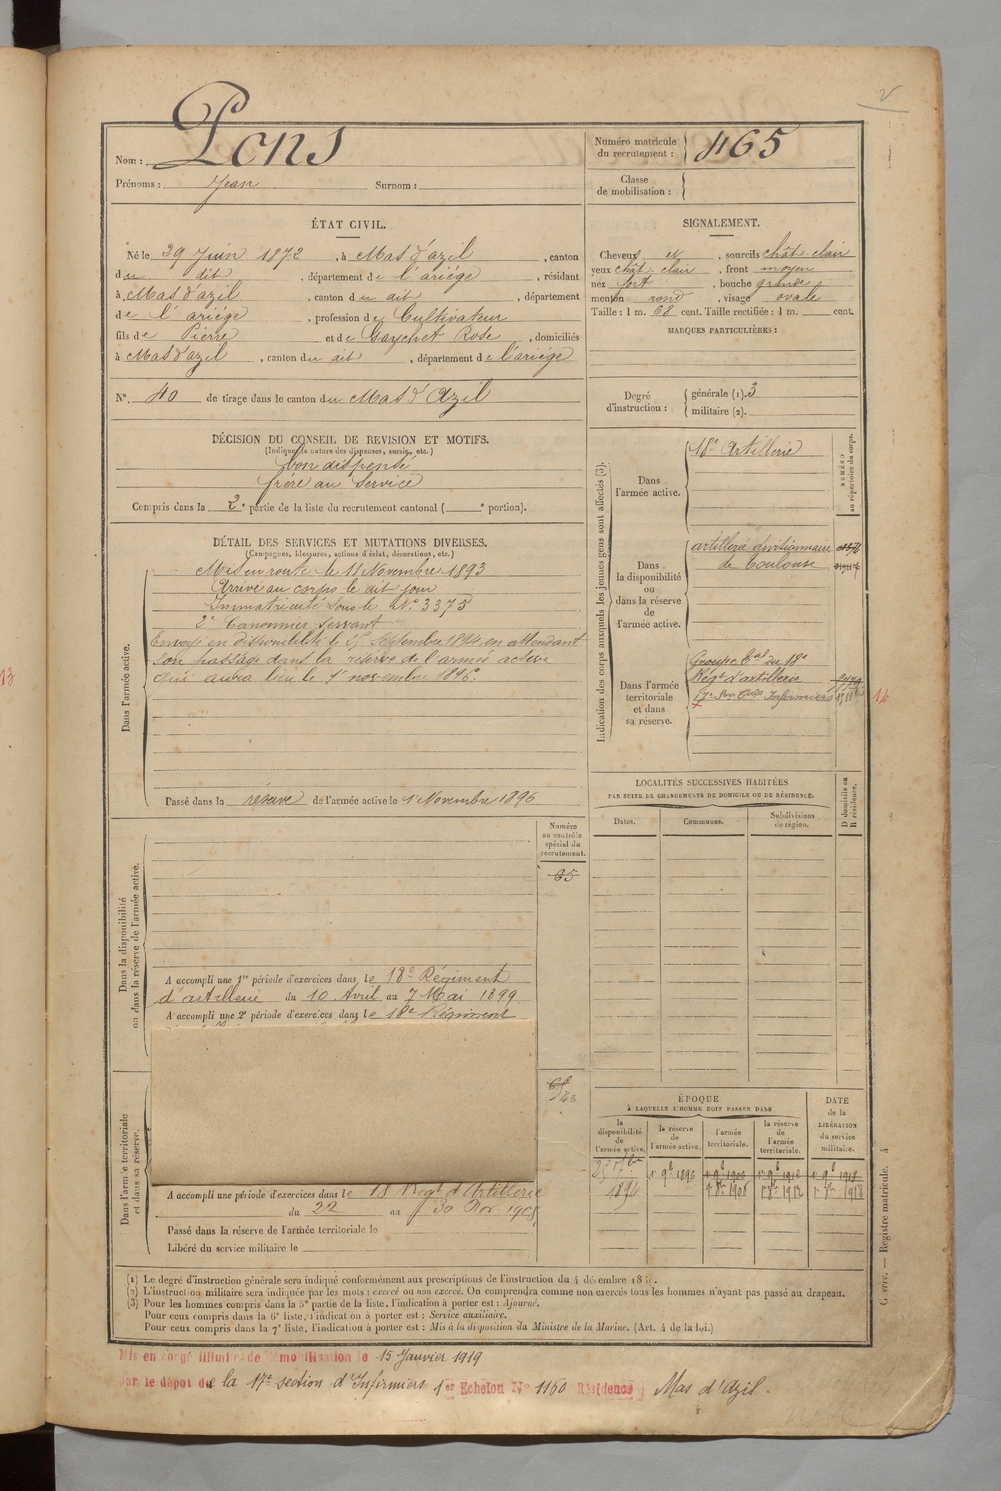 Nom : Pons
Prénoms : Jean Surnom :
Numéro matricule du recrutement : 465
Classe de mobilisation :
ÉTAT CIVIL.
Né le 29 Juin 1872, à Mas d'azil, canton
du dit, département de l'ariége, résidant
à Mas d'azil, canton du dit, département
de l'ariége, profession de Cultivateur
fils de Pierre et de Gaychet Rose, domiciliés
à Mas d'azil, canton du dit, département de l'ariége
N°. 40 de tirage dans le canton du Mas d'Azil
SIGNALEMENT.
Cheveux et, sourcils chât. clair
yeux chât. clair, front moyen
nez fort, bouche grande
menton rond, visage ovale
Taille : 1 m. 68 cent. Taille rectifiée : 1 m. cent.
MARQUES PARTICULIÈRES :
Degré d'instruction : générale (1). 3
militaire (2).
DÉCISION DU CONSEIL DE REVISION ET MOTIFS.
(Indiquer la nature des dispenses, sursis, etc.)
bon dispensé
frère au service
Compris dans la 2e partie de la liste du recrutement cantonal ( e portion).
DÉTAIL DES SERVICES ET MUTATIONS DIVERSES.
(Campagnes, blessures, actions d'éclat, décorations, etc.)
Dans l'armée active.
Mis en route le 11 Novembre 1893
Arrivé au corps le dit jour
Immatriculé sous le N° 3375
2e Canonnier servant
Envoyé en disponibilité le septembre 1894 en attendant
son passage dans la réserve de l'armée active
qui aura lieu le 1er novembre 1896.
Passé dans la réserve de l'armée active le 1er Novembre 1896
Indication des corps auxquels les jeunes gens sont affectés (3).
NUMÉRO au répertoire du corps.
Dans l'armée active.
18e Artillerie
Dans la disponibilité ou dans la réserve de l'armée active.
artillerie divisionnaire
de Toulouse
Dans l'armée territoriale et dans sa réserve.
Groupe Tal du 18e
Régt d'artillerie
17e Son Infirmiers
14
13
LOCALITÉS SUCCESSIVES HABITÉES
PAR SUITE DE CHANGEMENTS DE DOMICILE OU DE RÉSIDENCE.
D domicile ou R résidence.
Dates. Communes. Subdivisions de région.
Numéro au contrôle spécial du recrutement.
Dans la disponibilité ou dans la réserve de l'armée active.
A accompli une 1re période d'exercices dans le 18e Régiment
d'artillerie du 10 Avril au 7 Mai 1899
A accompli une 2e période d'exercices dans le 18e Régiment
Dans l'armée territoriale et dans sa réserve.
A accompli une période d'exercices dans le 18 Régt d'Artillerie
du 22 au 30 Nov 1908
Passé dans la réserve de l'armée territoriale le
Libéré du service militaire le
ÉPOQUE
À LAQUELLE L'HOMME DOIT PASSER DANS
la disponibilité de l'armée active.
la réserve de l'armée active.
l'armée territoriale.
la réserve de l'armée territoriale.
DATE de la LIBÉRATION du service militaire.
1894
1er 9b 1896
1er 9b 1906
1er 9b 1912
1er 9b 1918
Guerre. — Registre matricule. 4
(1) Le degré d'instruction générale sera indiqué conformément aux prescriptions de l'instruction du 4 décembre
(2) L'instruction militaire sera indiquée par les mots : exercé ou non exercé. On comprendra comme non exercés tous les hommes n'ayant pas passé au drapeau.
(3) Pour les hommes compris dans la 5e partie de la liste, l'indication à porter est : Ajourné.
Pour ceux compris dans la 6e liste, l'indication à porter est : Service auxiliaire.
Pour ceux compris dans la 7e liste, l'indication à porter est : Mis à la disposition du Ministre de la Marine. (Art. 4 de la loi.)
Mis en congé illimité de démobilisation le 15 Janvier 1919
par le dépôt de la 17e section d'Infirmiers 1er Echelon N° 1160 Résidence Mas d'Azil.